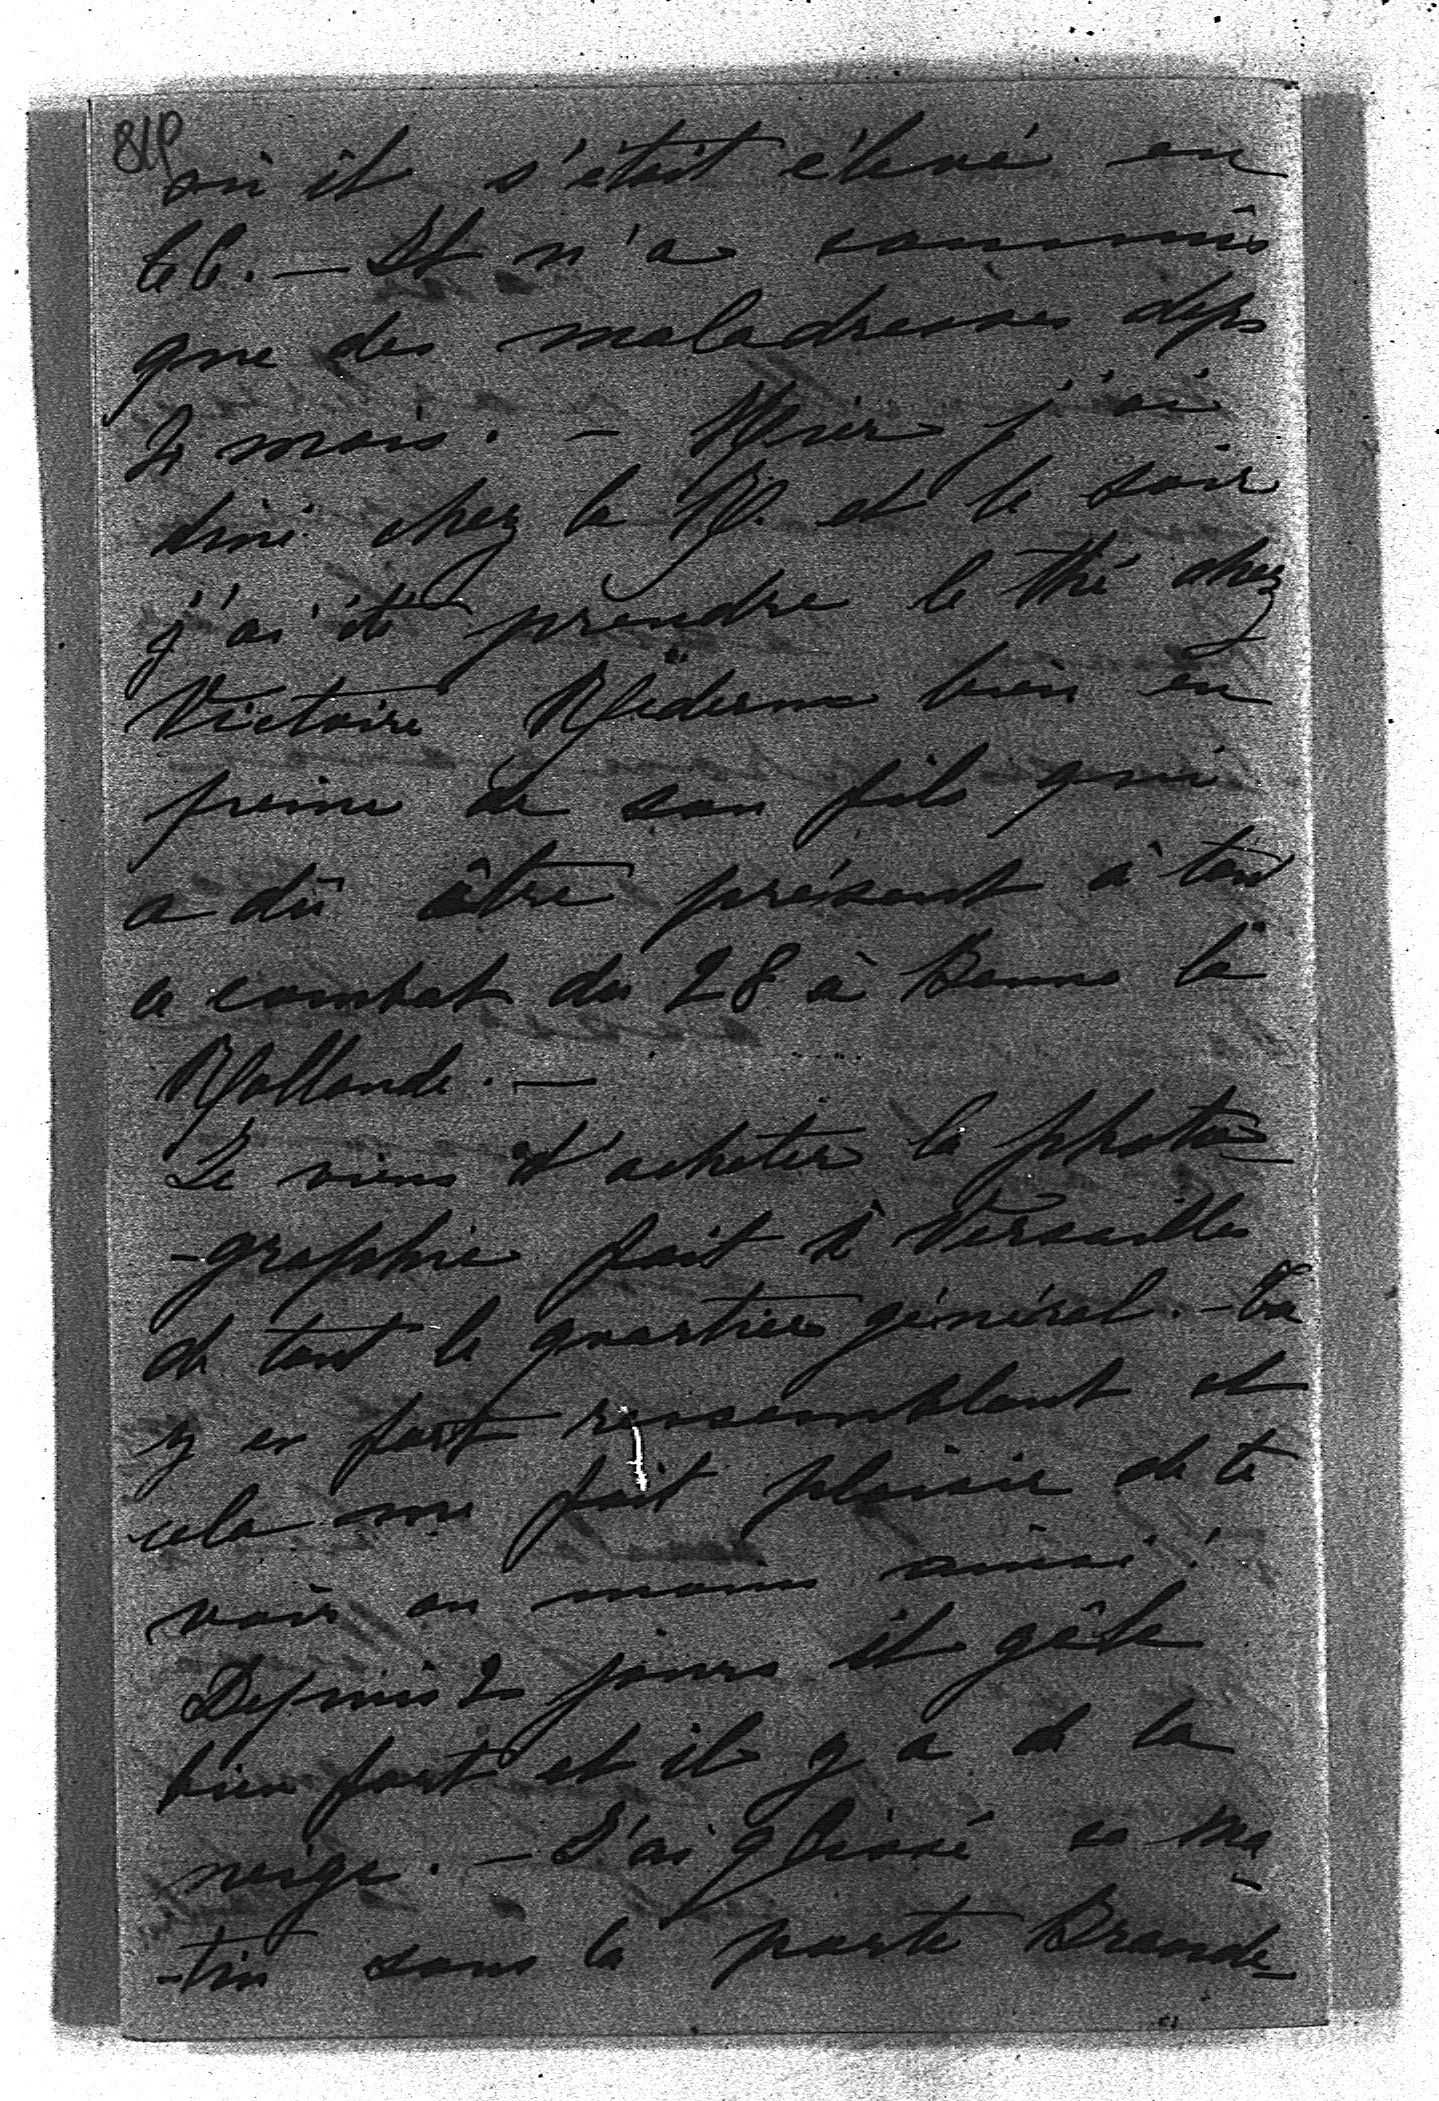 où il s'était élevé en
66. — Il n'a commis
que des maladresses deps
2 mois. — Hier j'ai
diné chez la R. et le soir
j'ai été prendre le thé chez
Victoire bien en
peine de son fils qui
a dû être présent à tout
ce combat du 28 à Beaune la
Rollande. —
Je viens d'acheter la photo-
-graphie fait à Versailles
de tout le quartier général. — Tu
y es fort ressemblant et
cela me fait plaisir de te
voir au moins ainsi!
Depuis 2 jours il gêle
bien fort et il y a de la
neige. — J'ai glissé ce ma
-tin sous la porte Brande-